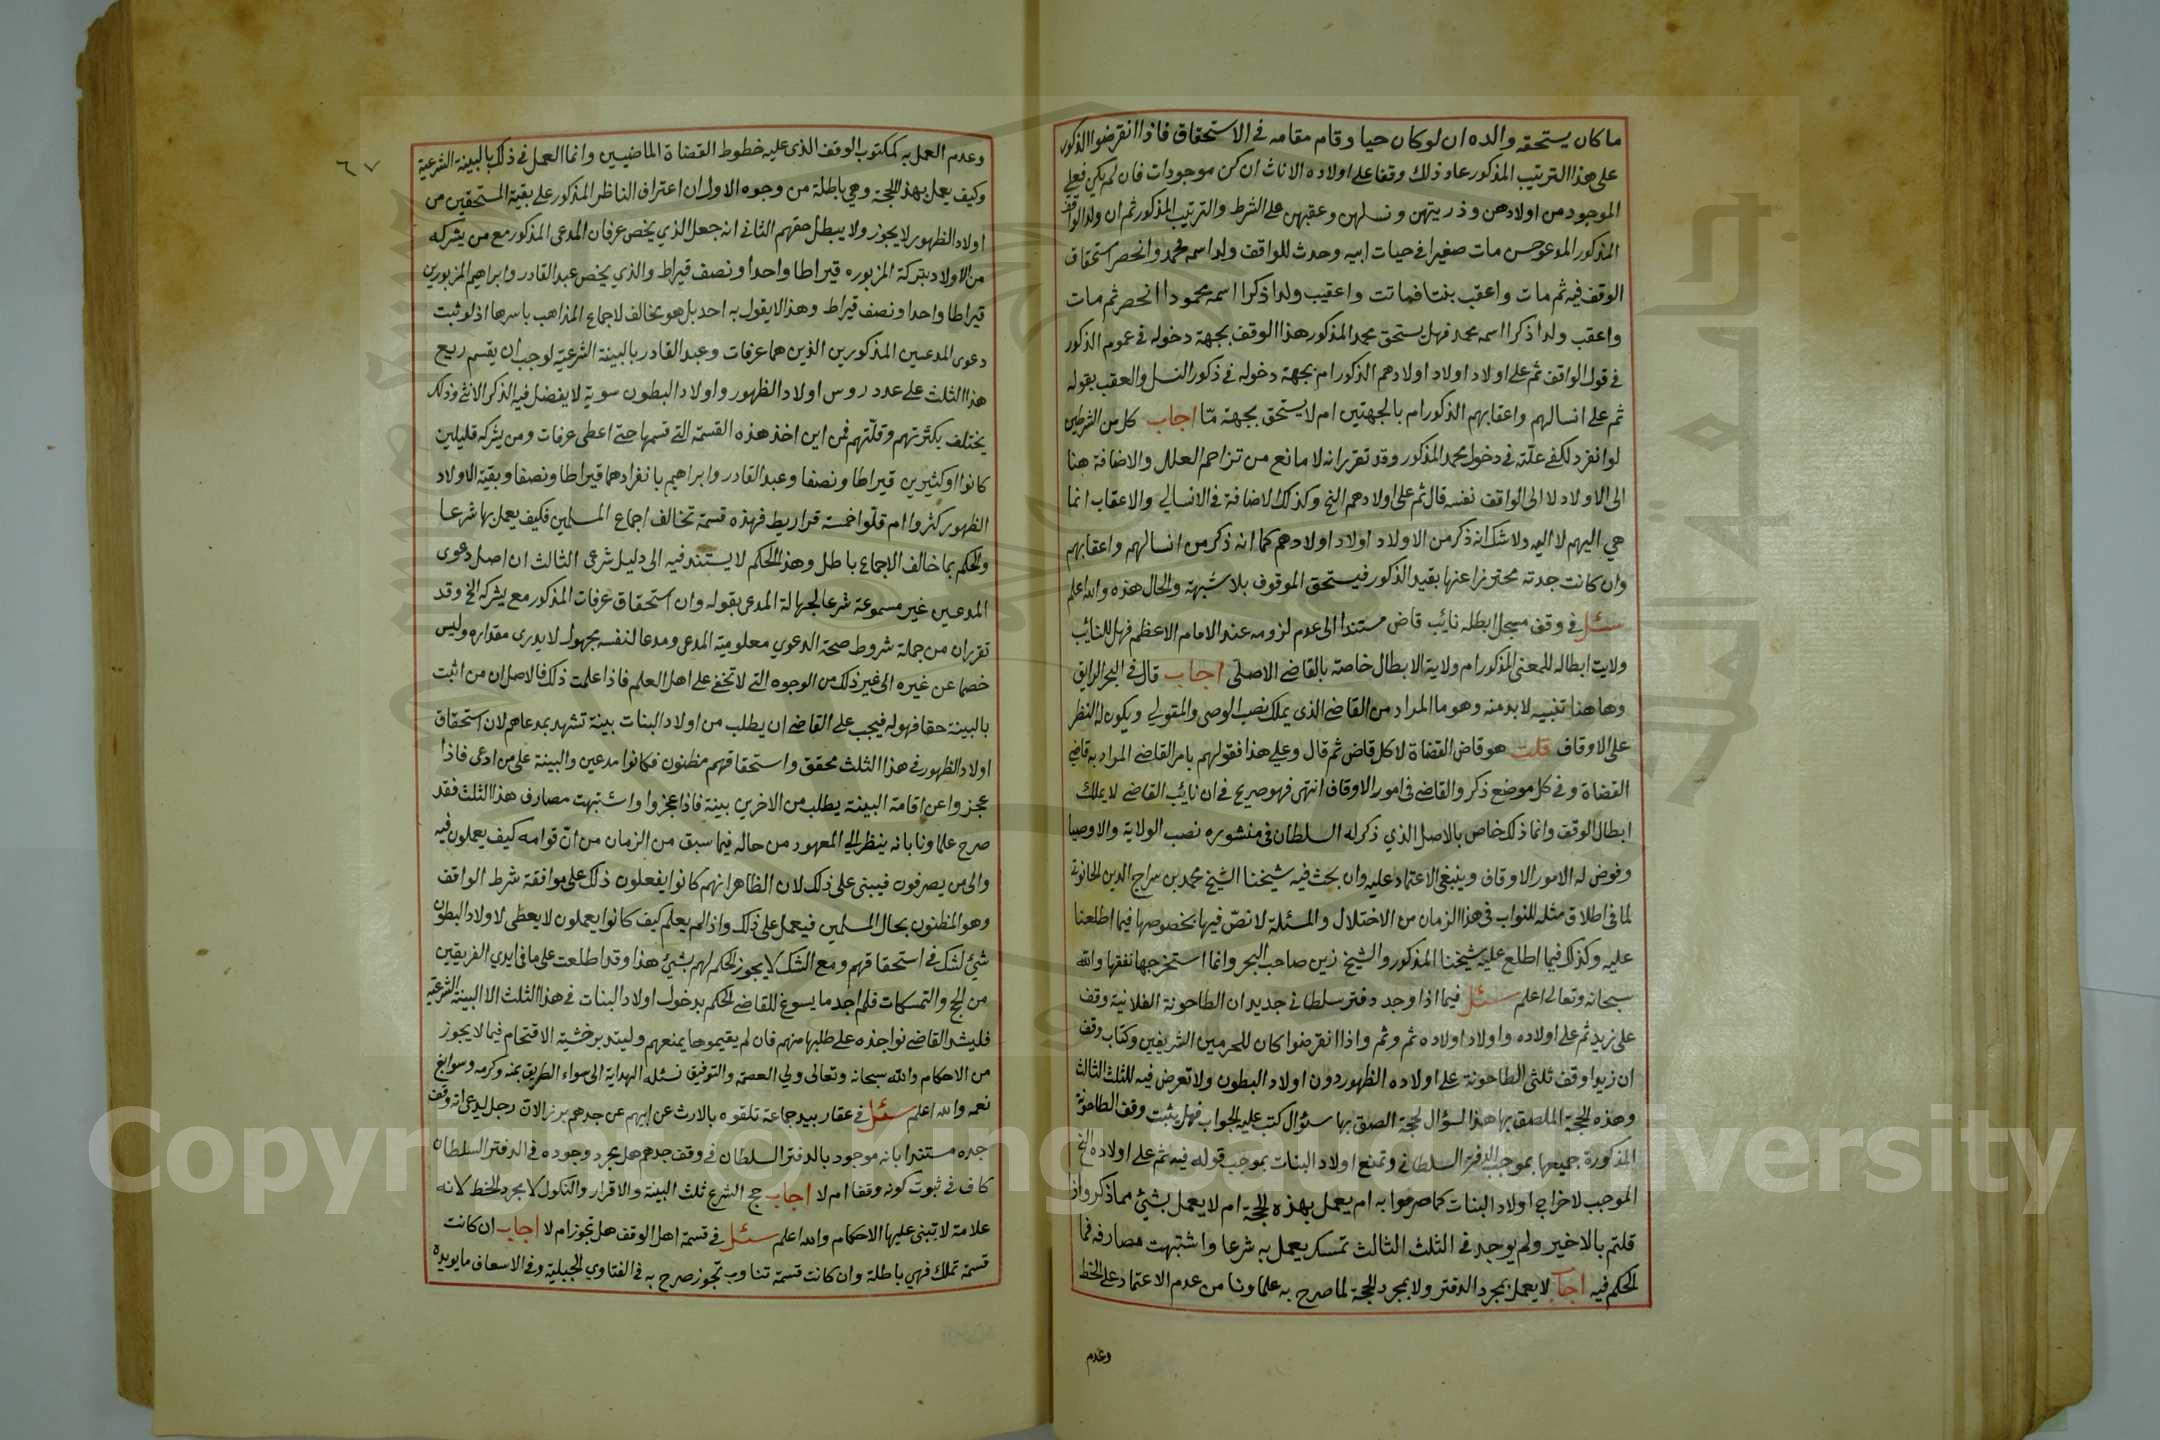 ما كان يستحقه والده ان لو كان حيا وقام مقامه في الاستحقاق فاذا انقرضوا الذكور
على هذا الترتيب المذكور عاد ذلك وقفا على اولاده الاناث ان كن موجودات فان لم يكن فعلى
الموجود من اولادهن وذريتهن ونسلهن وعقبهن على الشرط والترتيب المذكور ثم ان ولد الواقف
المذكور المدعو حسن مات صغيرا في حيات ابيه وحدث للواقف ولد اسمه محمد وانحصر استحقاق
الوقف فيه ثم مات واعقب بنتا فماتت واعقيب ولدا ذكرا اسمه محمودا انحصر ثم مات
واعقب ولدا ذكرا اسمه محمد فهل يستحق محمد المذكور هذا الوقف بجهة دخوله في عموم الذكور
في قول الواقف ثم على اولاد اولاد اولادهم الذكور ام بجهة دخوله في ذكور النسل والعقب بقوله
ثم على انسالهم واعقابهم الذكور ام بالجهتين ام لا يستحق بجهة ما اجاب كل من الشرطين
لو انفرد لكفى علته في دخول محمد المذكور وقد تقرر انه لا مانع من تزاحم العلل والاضافة هنا
الى الاولاد لا الى الواقف نفسه قال ثم على اولادهم الخ وكذلك الاضافة في الانسالي والاعقاب انما
هي اليهم لا اليه ولا شك انه ذكر من الاولاد اولاد اولادهم كما انه ذكر من انسالهم واعقابهم
وان كانت جدته محترزا عنها بقيد الذكور فيستحق الموقوف بلا شبهة والحال هذه والله اعلم
سئل في وقف مسجل ابطله نائب قاض مستندا الى عدم لزومه عند الامام الاعظم فهل للنائب
ولايت ابطاله للمعنى المذكور ام ولاية الابطال خاصة بالقاضي الاصلي اجاب قال في البحر الرايق
وهاهنا تنبيه لا بد منه وهو ما المراد من القاضي الذي يملك نصب الوصي والمتولي ويكون له النظر
على الاوقاف قلت هو قاض القضاة لا كل قاض ثم قال وعلى هذا فقولهم بامر القاضي المراد به قاضي
القضاة وفي كل موضع ذكر والقاضي في امور الاوقاف انتهى فهو صريح في ان نايب القاضي لا يملك
ابطال الوقف وانما ذلك خاص بالاصل الذي ذكر له السلطان في منشوره نصب الولاية والاوصيا
وفوض له الامور الاوقاف وينبغي الاعتماد عليه وان بحث فيه شيخنا الشيخ محمد بن سراج الدين الحانوتي
لما في اطلاق مثله للنواب في هذا الزمان من الاختلال والمسئلة لا نص فيها بخصوصها فيما اطلعنا
عليه وكذلك فيما اطلع عليه شيخنا المذكور والشيخ زين صاحب البحر وانما استخرجها تفقها والله
سبحانه وتعالى اعلم سئل فيما اذا وجد دفتر سلطاني جديد ان الطاحونة الفلانية وقف
على زيد ثم على اولاده واولاد اولاده ثم وثم واذا انقرضوا كان للحرمين الشريفين وكتاب وقف
ان زيدا وقف ثلثي الطاحونة على اولاده الظهور دون اولاد البطون ولا تعرض فيه للثلث الثالث
وهذه الحجة الملصق بها هذا السؤال لحجة الصق بها سئوال كتب عليه الجواب فهل يثبت وقف الطاحونة
المذكورة جميعها بموجب الدفتر السلطاني وتمنع اولاد البنات بموجب قوله فيه ثم على اولاده الخ
الموجب لاخراج اولاد البنات كما صرحوا به ام يعمل بهذه الحجة ام لا يعمل بشيئ مما ذكر واذ
قلتم بالاخير ولم يوجد في الثلث الثالث تمسك يعمل به شرعا واشتبهت مصارفه فما
الحكم فيه اجاب لا يعمل بمجرد الدفتر ولا بمجرد الحجة لما صرح به علماونا من عدم الاعتماد على الخط
وعدم
٦٧
وعدم العمل به كمكتوب الوقف الذي عليه خطوط القضاة الماضيين وانما العمل في ذلك بالبينة الشرعية
وكيف يعمل بهذ الحجة وهي باطلة من وجوه الاول ان اعتراف الناظر المذكور على بقية المستحقين من
اولاد الظهور لا يجوز ولا يبطل حقهم الثاني انه جعل الذي يخص عرفان المدعى المذكور مع من يشركه
من الاولاد بتركة المزبوره قيراطا واحدا ونصف قيراط والذي يخص عبد القادر وابراهيم المزبورين
قيراطا واحدا ونصف قيراط وهذا لا يقول به احد بل هو مخالف لاجماع المذاهب باسرها اذ لو ثبت
دعوى المدعيين المذكورين الذين هما عرفات وعبد القادر بالبينة الشرعية لوجب ان يقسم ريع
هذا الثلث على عدد روس اولاد الظهور واولاد البطون سوية لا يفضل فيه الذكر الانثى وذلك
يختلف بكثرتهم وقلتهم فمن اين اخذ هذه القسمة التي قسمها حتى اعطى عرفات ومن يشركه قليلين
كانوا او كثيرين قيراطا ونصفا وعبد القادر وابراهيم بانفرادهما قيراطا ونصفا وبقية الاولاد
الظهور كثروا ام قلوا خمسة قراريط فهذه قسمة تخالف اجماع المسلمين فكيف يعمل بها شرعا
والحكم بما خالف الاجماع باطل وهذا الحكم لا يستند فيه الى دليل شرعي الثالث ان اصل دعوى
المدعيين غير مسموعة شرعا لجهالة المدعى بقوله وان استحقاق عرفات المذكور مع يشركه الخ وقد
تقرر ان من جملة شروط صحة الدعوي معلومية المدعى ومدعا لنفسه بجهول لا يدرى مقداره وليس
خصما عن غيره الى غير ذلك من الوجوه التي لا تخفى على اهل العلم فاذا علمت ذلك فالاصل ان من اثبت
بالبينة حقا فهو له فيجب على القاضي ان يطلب من اولاد البنات بينة تشهد بمدعاهم لان استحقاق
اولاد الظهور في هذا الثلث محقق واستحقاقهم مظنون فكانوا مدعين والبينة على من ادعى فاذا
عجزوا عن اقامة البينة يطلب من الاخرين بينة فاذا عجزوا واشتبهت مصارف هذا الثلث فقد
صرح علماونا بانه ينظر الى المعهود من حاله فيما سبق من الزمان من ان قوامه كيف يعملون فيه
والى من يصرفون فيبنى على ذلك لان الظاهر انهم كانوا يفعلون ذلك على موافقة شرط الواقف
وهو المظنون بحال المسلمين فيعمل على ذلك واذا لم يعلم كيف كانوا يعملون لا يعطى لاولاد البطون
شيئ لشك في استحقاقهم ومع الشك لا يجوز الحكم لهم بشيئ هذا وقد اطلعت على ما في ايدي الفريقين
من الحج والتمسكات فلم اجد ما يسوغ للقاضي الحكم بدخول اولاد البنات في هذا الثلث الا البينة الشرعية
فليشد القاضي نواجذه على طلبها منهم فان لم يقيموها يمنعهم وليتدبر خشية الاقتحام فيما لا يجوز
من الاحكام والله سبحانه وتعالى ولي العصمة والتوفيق نسئله الهداية الى سواء الطريق بمنه وكرمه وسوابغ
نعمه والله اعلم سئل في عقار بيد جماعة تلقوه بالارث عن ابيهم عن جدهم برز الان رجل يدعى انه وقف
جده مستندا بانه موجود بالدفتر السلطان في وقف جدهم هل بجرد وجوده في الدفتر السلطان
كاف في ثبوت كونه وقفا ام لا اجاب حج الشرع ثلث البينة والاقرار والنكول لا بمجرد الخط لانه
علامة لا تبنى عليها الاحكام والله اعلم سئل في قسمة اهل الوقف هل تجوز ام لا اجاب ان كانت
قسمة تملك فهي باطلة وان كانت قسمة تناوب تجوز صرح به في الفتاوي الجبلية وفي الاسعاف ما يويده
Copyright © King Saud University